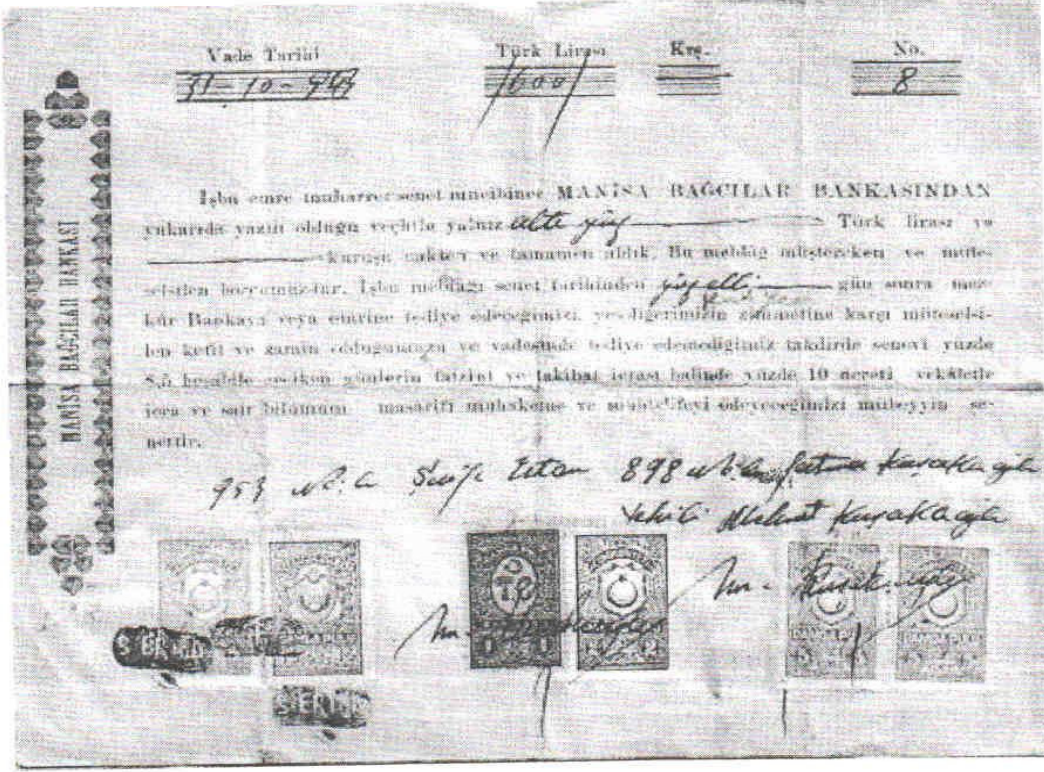 Vade Tarihi Türk Lirası Krş. No.
31-10-947 600 8
MANİSA BAĞCILAR BANKASI
İşbu emre muharrer senet mucibince MANİSA BAĞCILAR BANKASINDAN
yukarıda yazılı olduğu veçhile yalnız altı yüz Türk lirası ve
kuruşu nakten ve tamamen aldık. Bu meblâğ müştereken ve müte-
selsilen borcumuzdur. İşbu meblâğı senet tarihinden yüzelli gün sonra mez-
kûr Bankaya veya emrine tediye edeceğimizi, ve diğerimizin zimmetine karşı müteselsi-
len kefil ve zamin olduğumuzu ve vadesinde tediye edemediğimiz takdirde senevi yüzde
8,5 hesabile geciken günlerin faizini ve takibat icrası halinde yüzde 10 ücreti vekâletle
icra ve sair bilûmum masarifi muhakeme ve müteferrikayı ödeyeceğimizi mübeyyin se-
nettir.
953 Ertan 898 Fatma
Vekili Mehmet
S ERTAN
S ERTAN